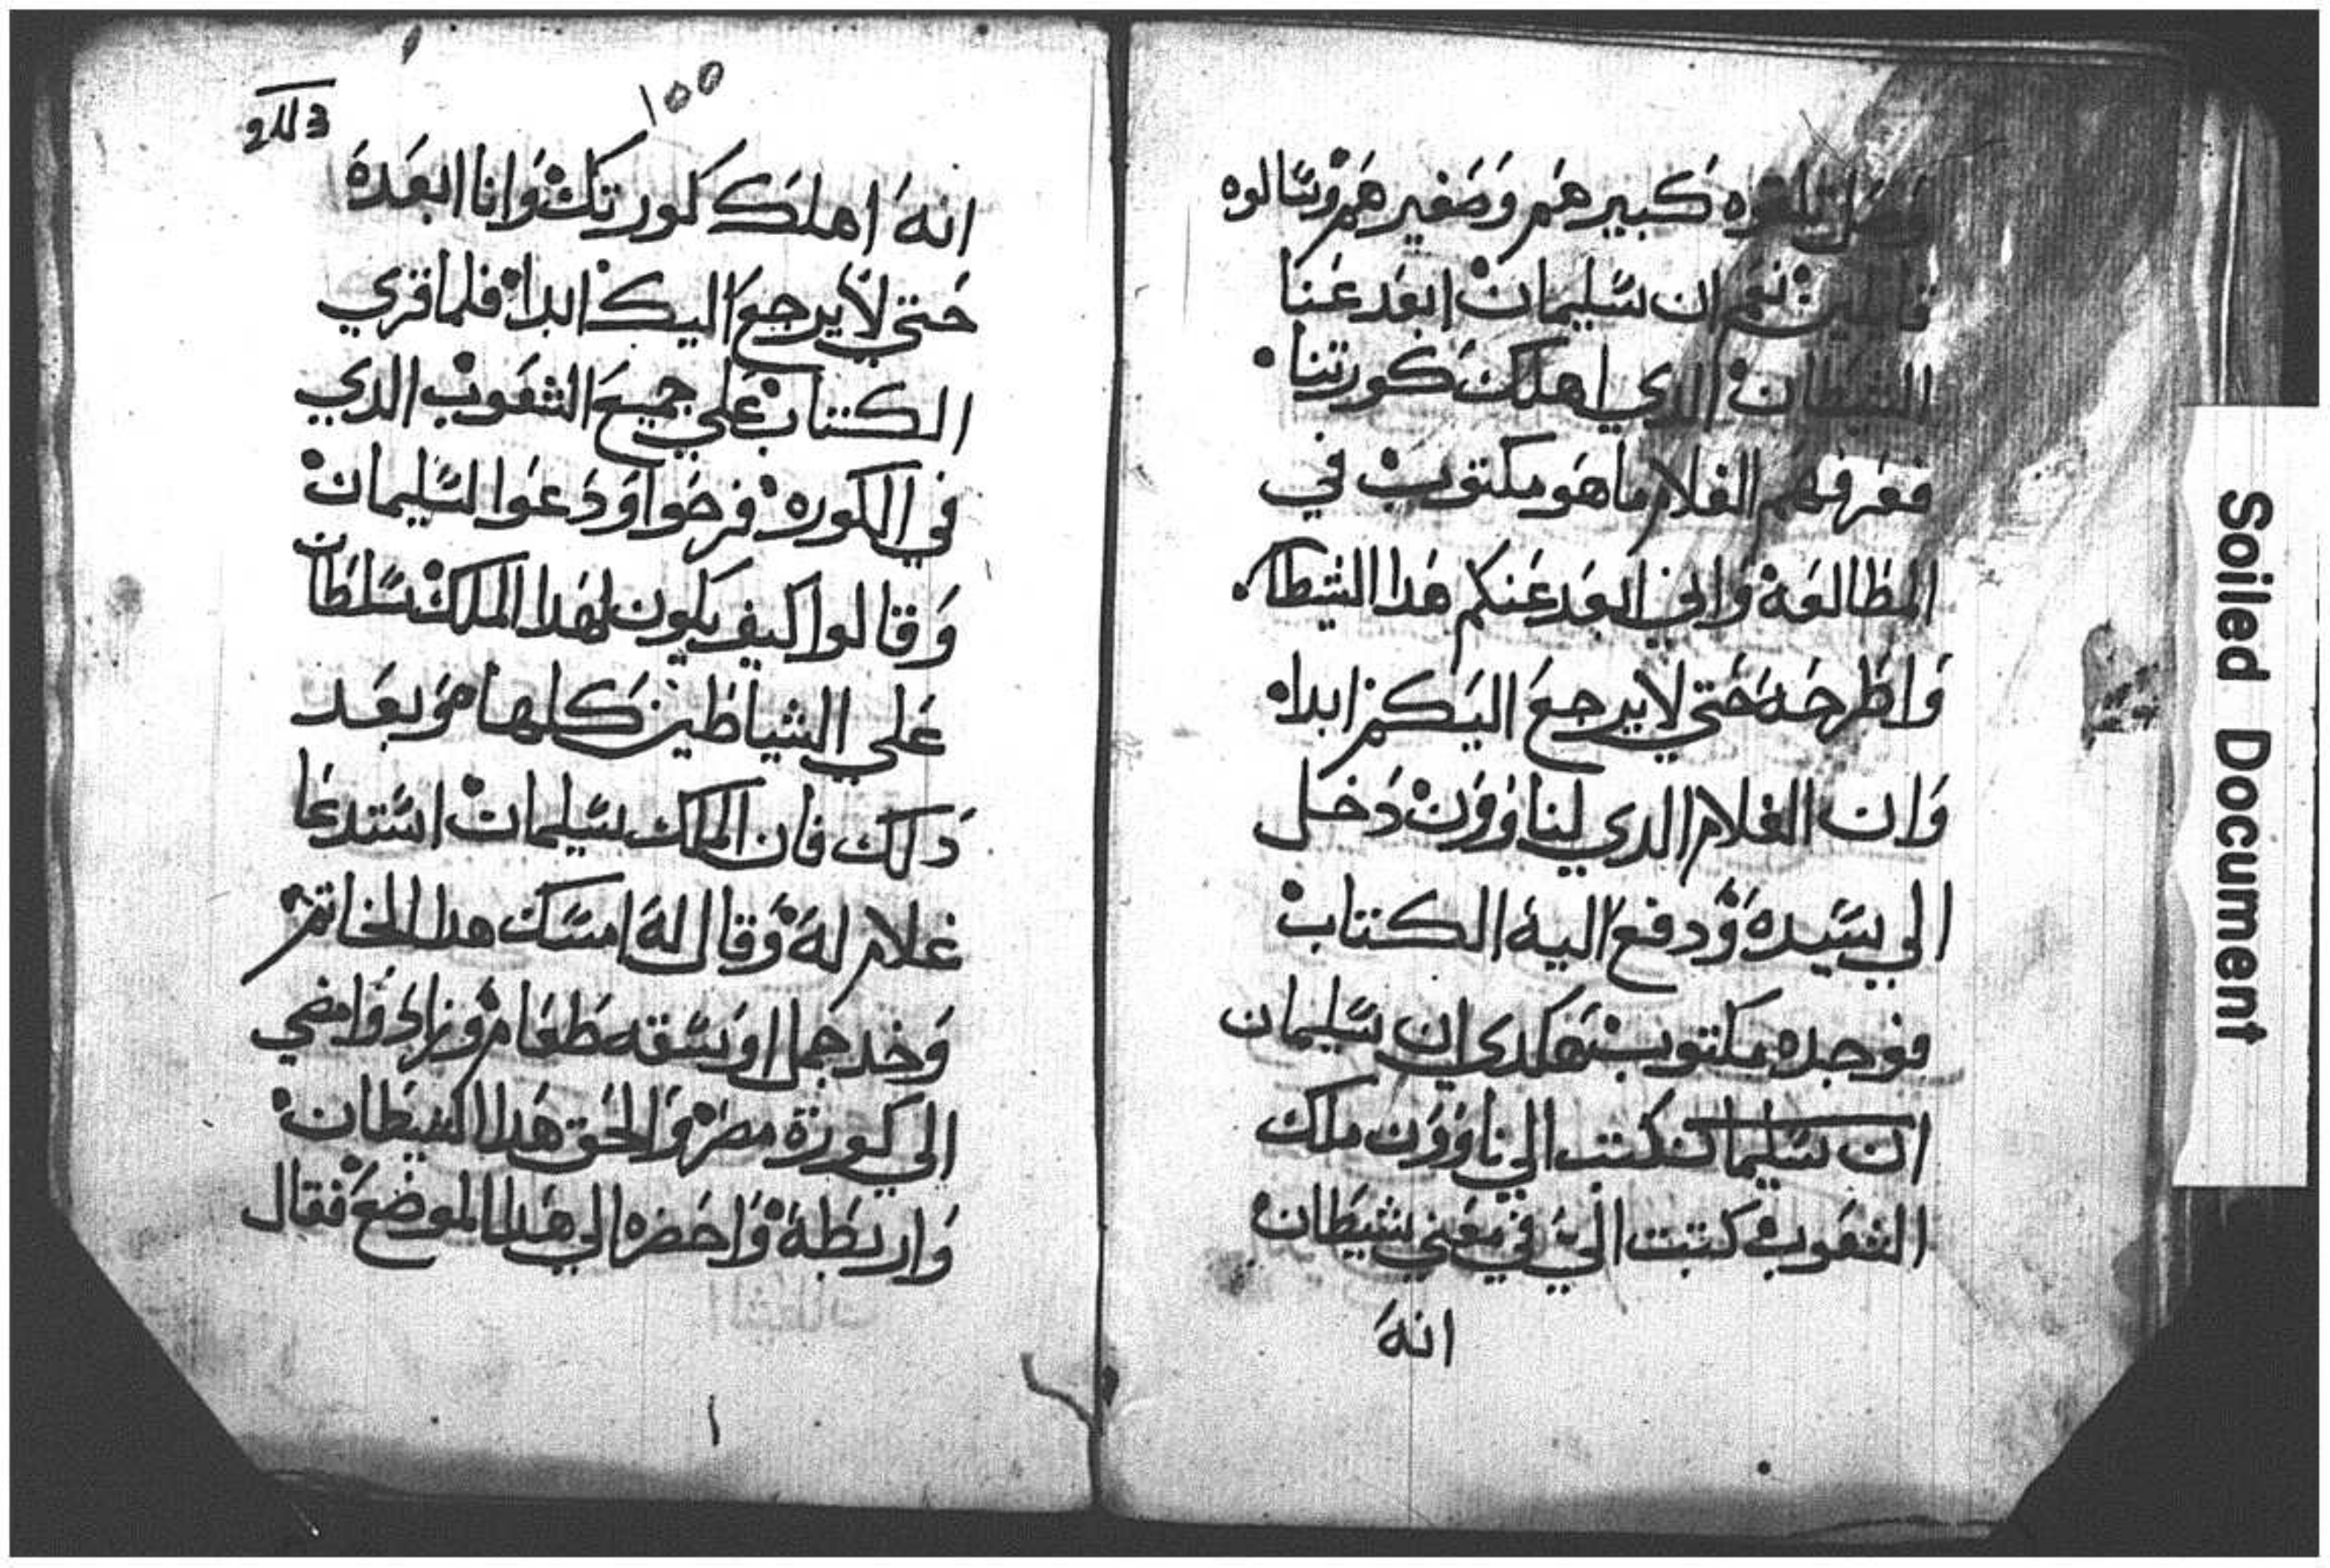 تلقوه كبيرهم وصغيرهم وسالوه
قايلين نعم ان سليمان ابعد عنا
الشيطان الدي اهلك كورتنا
فعرفهم الغلام ما هو مكتوب في
المطالعة واني ابعد عنكم هدا الشيطان
واطرحه حتي لا يرجع اليكم ابدا
وان الغلام الدي لناوون دخل
الي سيده ودفع اليه الكتاب
فوجده مكتوب هكدي ان سليمان
ان سليمان كتب الي ناوون ملك
الشعوب كتبت الي في معني شيطان
انه
١٥٥
انه اهلك كورتك وانا ابعده
حتي لا يرجع اليك ابدا فلما قري
الكتاب علي جميع الشعوب الدي
في الكوره فرحوا ودعوا لسليمان
وقالوا كيف يكون لهدا الملك سلطان
علي الشياطين كلها وبعد
دلك فان الملك سليمان استدعا
غلام له وقال له امسك هدا الخاتم
وخد جمل اوسقه طعام وزاد وامضي
الي كورة مصر والحق هدا الشيطان
واربطه واحضره الي هدا الموضع فقال
Soiled Document